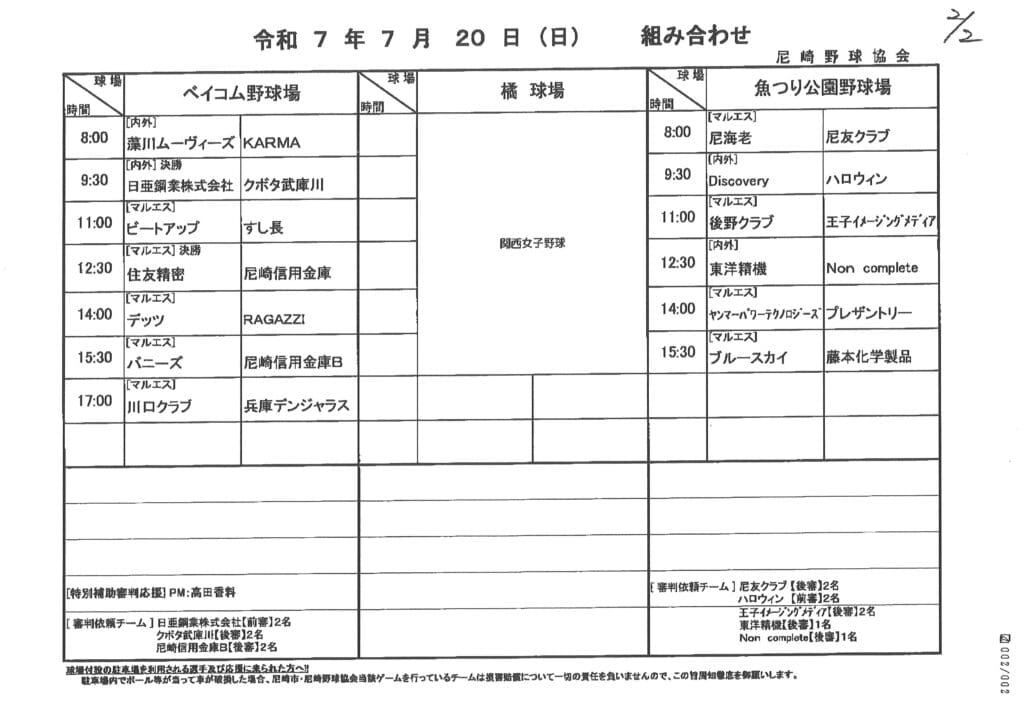 令和 7 年 7 月 20 日（日） 組み合わせ
2/2
尼崎野球協会
球場 時間 ベイコム野球場 球場 時間 橘 球場 球場 時間 魚つり公園野球場
8:00 [内外] 藻川ムーヴィーズ KARMA
9:30 [内外] 決勝 日亜鋼業株式会社 クボタ武庫川
11:00 [マルエス] ビートアップ すし長
12:30 [マルエス] 決勝 住友精密 尼崎信用金庫
14:00 [マルエス] デッツ RAGAZZI
15:30 [マルエス] バニーズ 尼崎信用金庫B
17:00 [マルエス] 川口クラブ 兵庫デンジャラス
関西女子野球
8:00 [マルエス] 尼海老 尼友クラブ
9:30 [内外] Discovery ハロウィン
11:00 [マルエス] 後野クラブ 王子イメージングメディア
12:30 [内外] 東洋精機 Non complete
14:00 [マルエス] ヤンマーパワーテクノロジーズ プレザントリー
15:30 [マルエス] ブルースカイ 藤本化学製品
[特別補助審判応援] PM:高田香料
[審判依頼チーム] 日亜鋼業株式会社【前審】2名
クボタ武庫川【後審】2名
尼崎信用金庫B【後審】2名
[審判依頼チーム] 尼友クラブ【後審】2名
ハロウィン【前審】2名
王子イメージングメディア【後審】2名
東洋精機【後審】1名
Non complete【後審】1名
球場付設の駐車場を利用される選手及び応援に来られた方へ!!
駐車場内でボール等が当って車が破損した場合、尼崎市・尼崎野球協会当該ゲームを行っているチームは損害賠償について一切の責任を負いませんので、この旨周知徹底を御願いします。
002/002